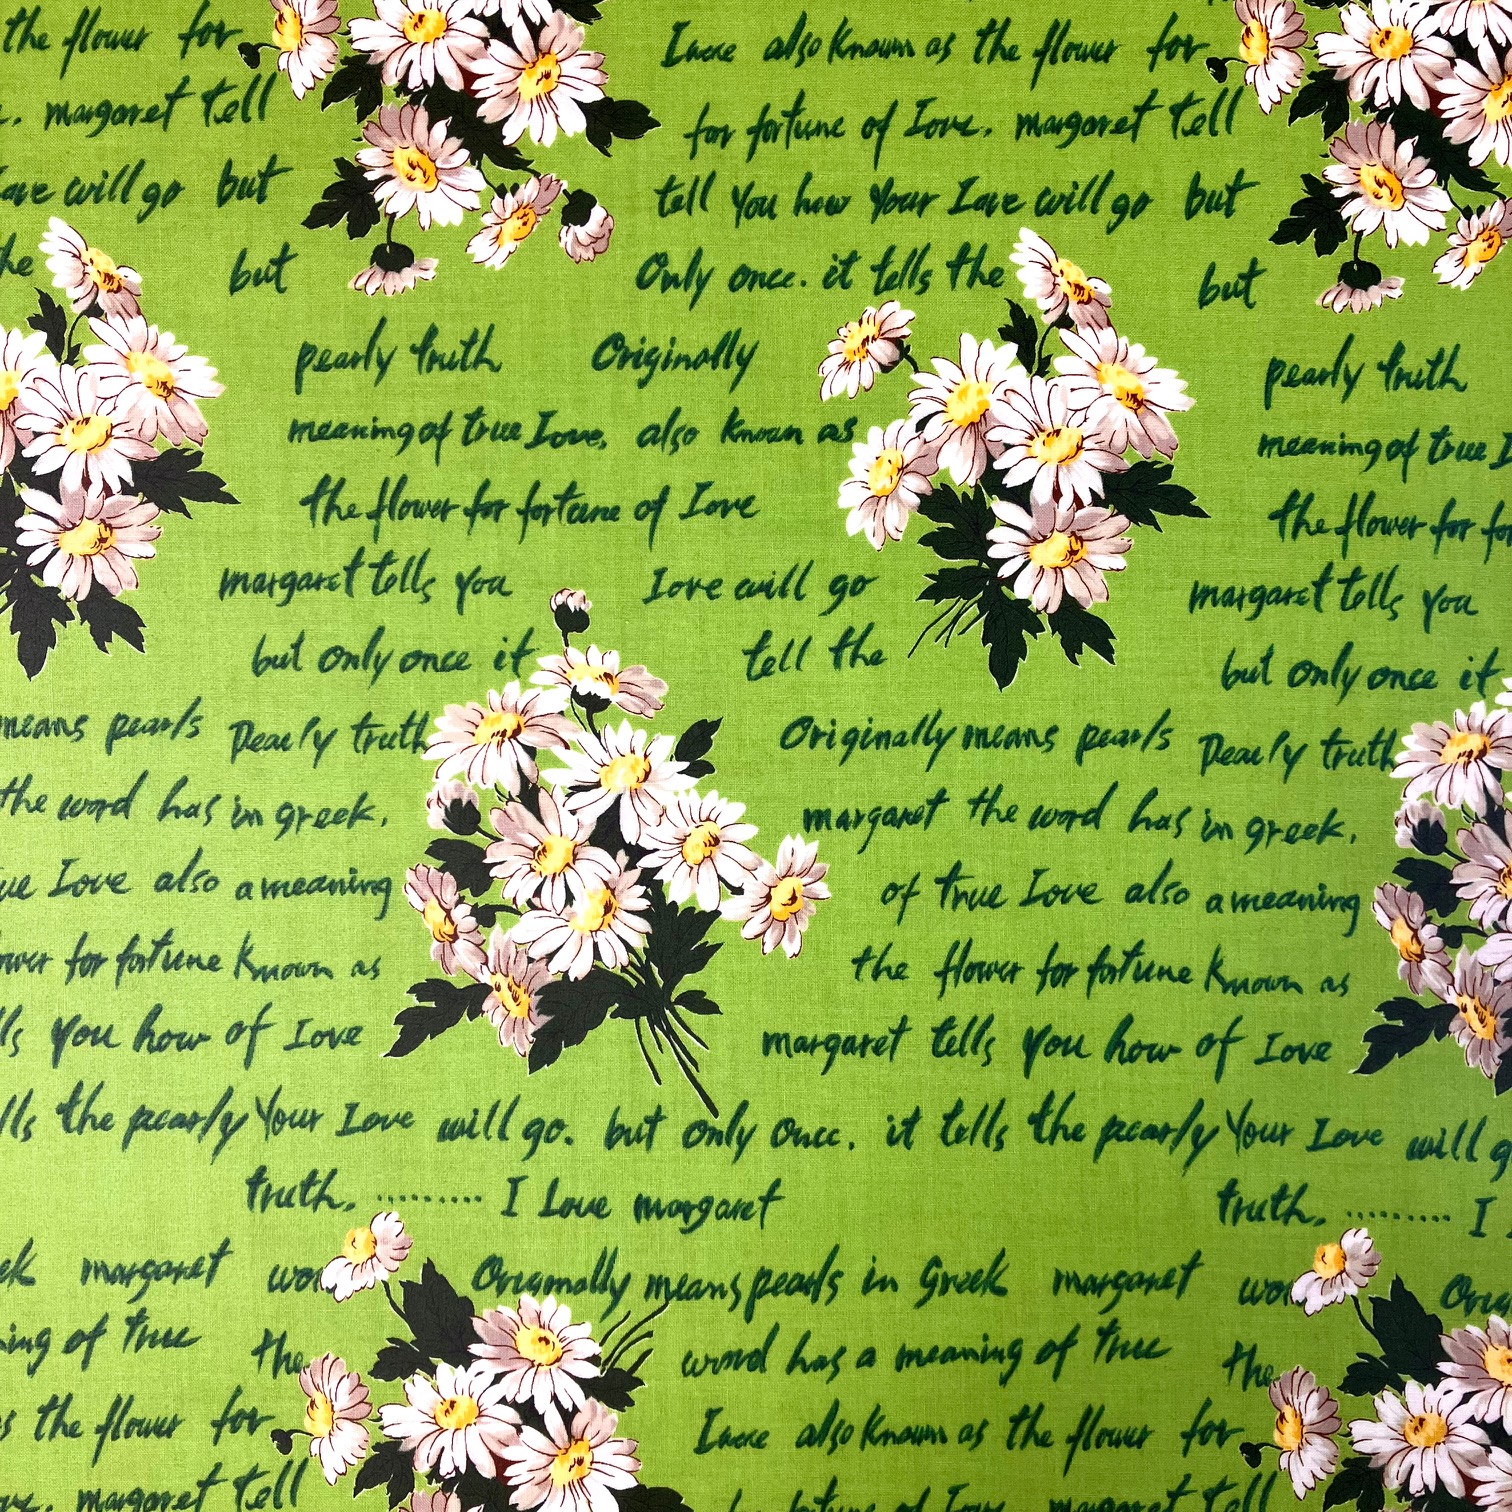 the flower for Love also Known as the flower for
margaret tell for fortune of Love. margaret tell
Love will go but tell You how Your Love will go but
the but Only once. it tells the but
pearly truth Originally pearly truth
meaning of true Love, also known as meaning of true
the flower for fortune of Love the flower for
margaret tells you Love will go margaret tells you
but only once it tell the but only once it
means pearls Pearly truth Originally means pearls Pearly truth
the word has in greek. margaret the word has in greek.
Love also a meaning of true Love also a meaning
for fortune Known as the flower for fortune Known as
you how of Love margaret tells you how of Love
the pearly Your Love will go. but only once. it tells the pearly Your Love will
truth. ......... I Love margaret truth. ......... I
margaret Originally means pearls in Greek margaret
of true the word has a meaning of true the
the flower for Love also Known as the flower for
margaret tell fortune of Love margaret tell